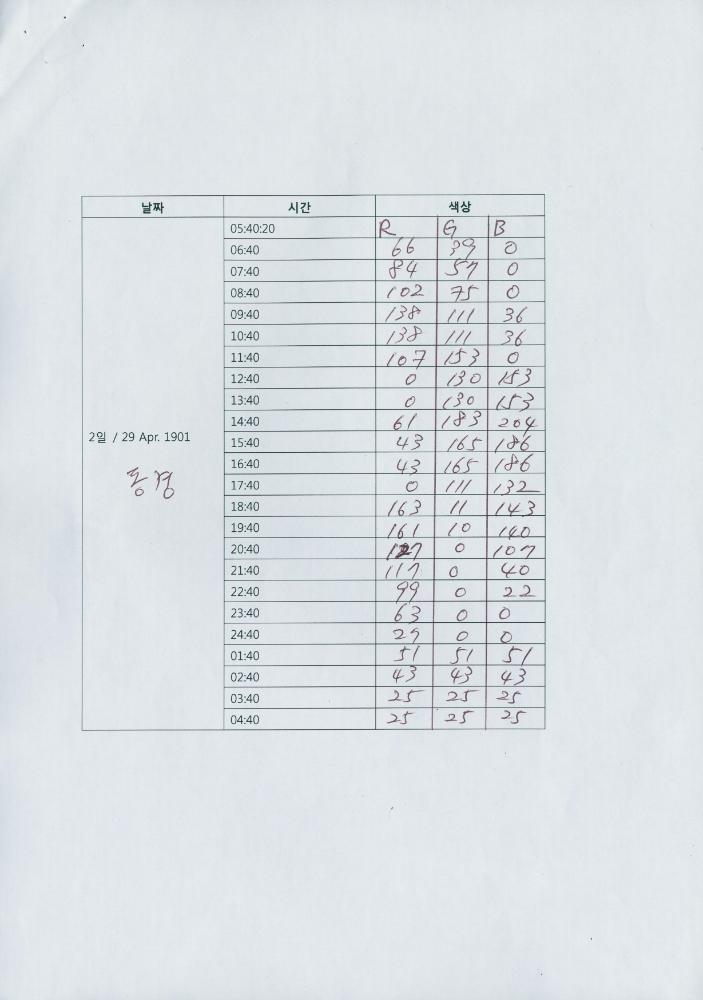 날짜 시간 색상
05:40:20 R G B
06:40 66 39 0
07:40 84 57 0
08:40 102 75 0
09:40 138 111 36
10:40 138 111 36
11:40 107 153 0
12:40 0 130 153
13:40 0 130 153
14:40 61 183 204
2일 / 29 Apr. 1901
15:40 43 165 186
16:40 43 165 186
동경
17:40 0 111 132
18:40 163 11 143
19:40 161 10 140
20:40 127 0 107
21:40 117 0 40
22:40 99 0 22
23:40 63 0 0
24:40 27 0 0
01:40 51 51 51
02:40 43 43 43
03:40 25 25 25
04:40 25 25 25